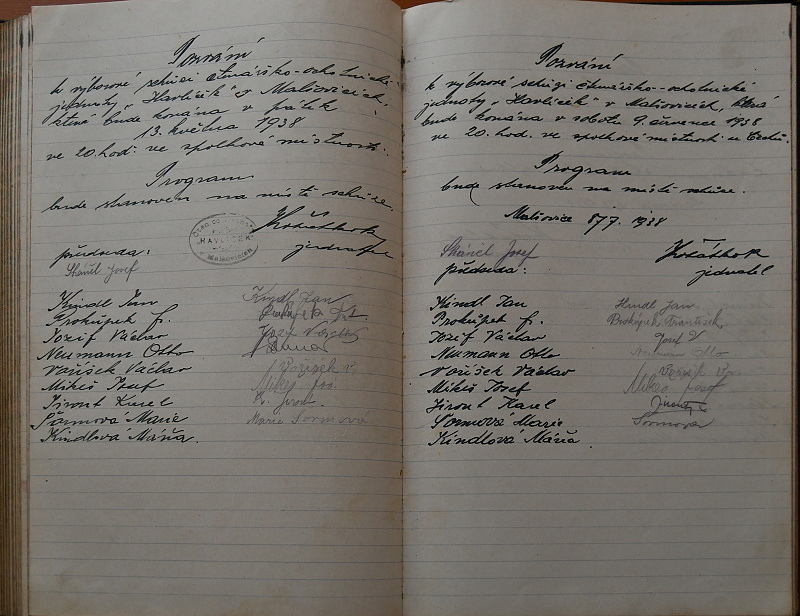 Pozvání
k výborové schůzi čtenářsko-ochotnické
jednoty „Havlíček" v Malšovicích,
která bude konána v pátek
13. května 1938
ve 20. hod. ve spolkové místnosti.
Program
bude stanoven na místě schůze.
HAVLÍČEK
předseda: jednatel
Skácil Josef
Kindl Jan Kindl Jan
Prokůpek Fr.
Jozíf Václav
Neumann Otto
Voříšek Václav Voříšek V.
Mikeš Josef Mikeš Jos.
Jirout Karel K. Jirout
Šormová Marie Marie Šormová
Kindlová Máňa.
Pozvání
k výborové schůzi čtenářsko-ochotnické
jednoty „Havlíček" v Malšovicích, která
bude konána v sobotu 9. července 1938
ve 20. hod. ve spolkové místnosti u
Program
bude stanoven na místě schůze.
Malšovice 8/7. 1938
Skácil Josef
předseda: jednatel
Kindl Jan Kindl Jan
Prokůpek Fr. Prokůpek František
Jozíf Václav Jozíf V
Neumann Otto Neumann Otto
Voříšek Václav Voříšek V.
Mikeš Josef Mikeš Josef
Jirout Karel
Šormová Marie Šormová
Kindlová Máňa